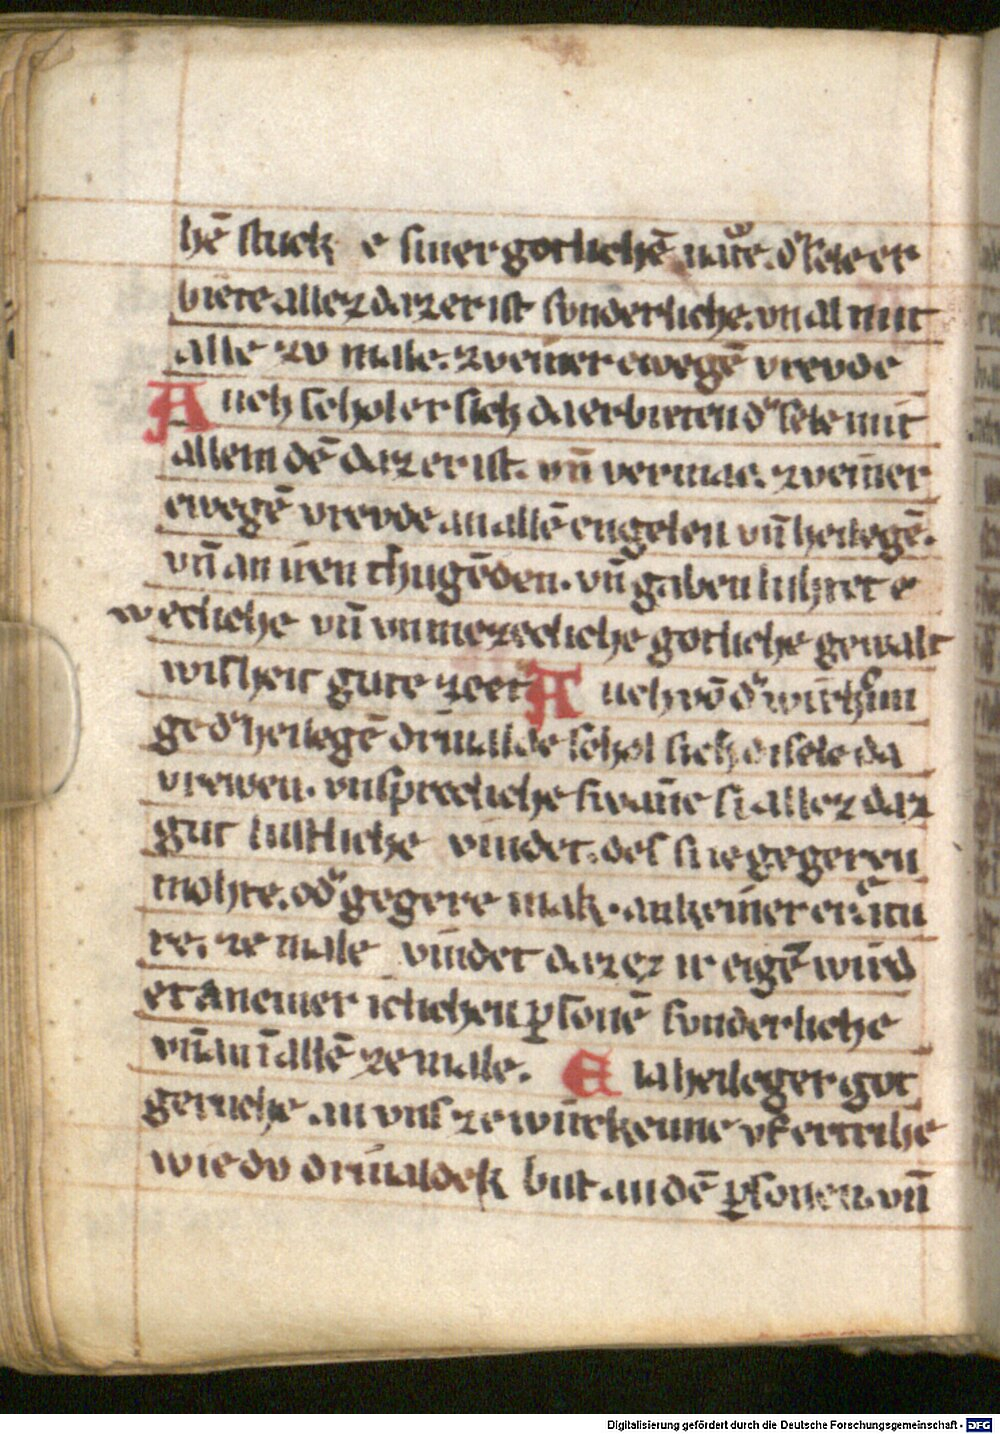 hē stuck e siner gotlichē natuͦre. dˢ sele er
biete allez daz er ist sunderliche. vn al mit
alle zv male. zv einer ewegē vrevde
Auch schol er sich da erbieten dˢ sele mit
allem dē daz er ist. vn̄ vermac. zv einer
ewegē vrevde an allē engelen vn̄ heilegē.
vn̄ an iren thugēden. vn̄ gaben
wecliche vn̄ vnmezzecliche gotliche gewalt
wisheit gute Auch vō dˢ
ge dˢ heilegē drivaldē schol sich di sele da
vrewen. vnsprecliche swanne si allez daz
gut lustliche vindet. des si ie gegeren
mohte. odˢ gegere mak. an keiner creatu
re. ze male vindet daz ez ir eigē wird
et an einer iclichen ꝑsonē sunderliche
vn̄ an in allē ze male. Eia heileger got
geruche an vns ze wurckenne
wie dv drivaldek bist an dē ꝑsonen. vn̄
Digitalisierung gefördert durch die Deutsche Forschungsgemeinschaft - DFG